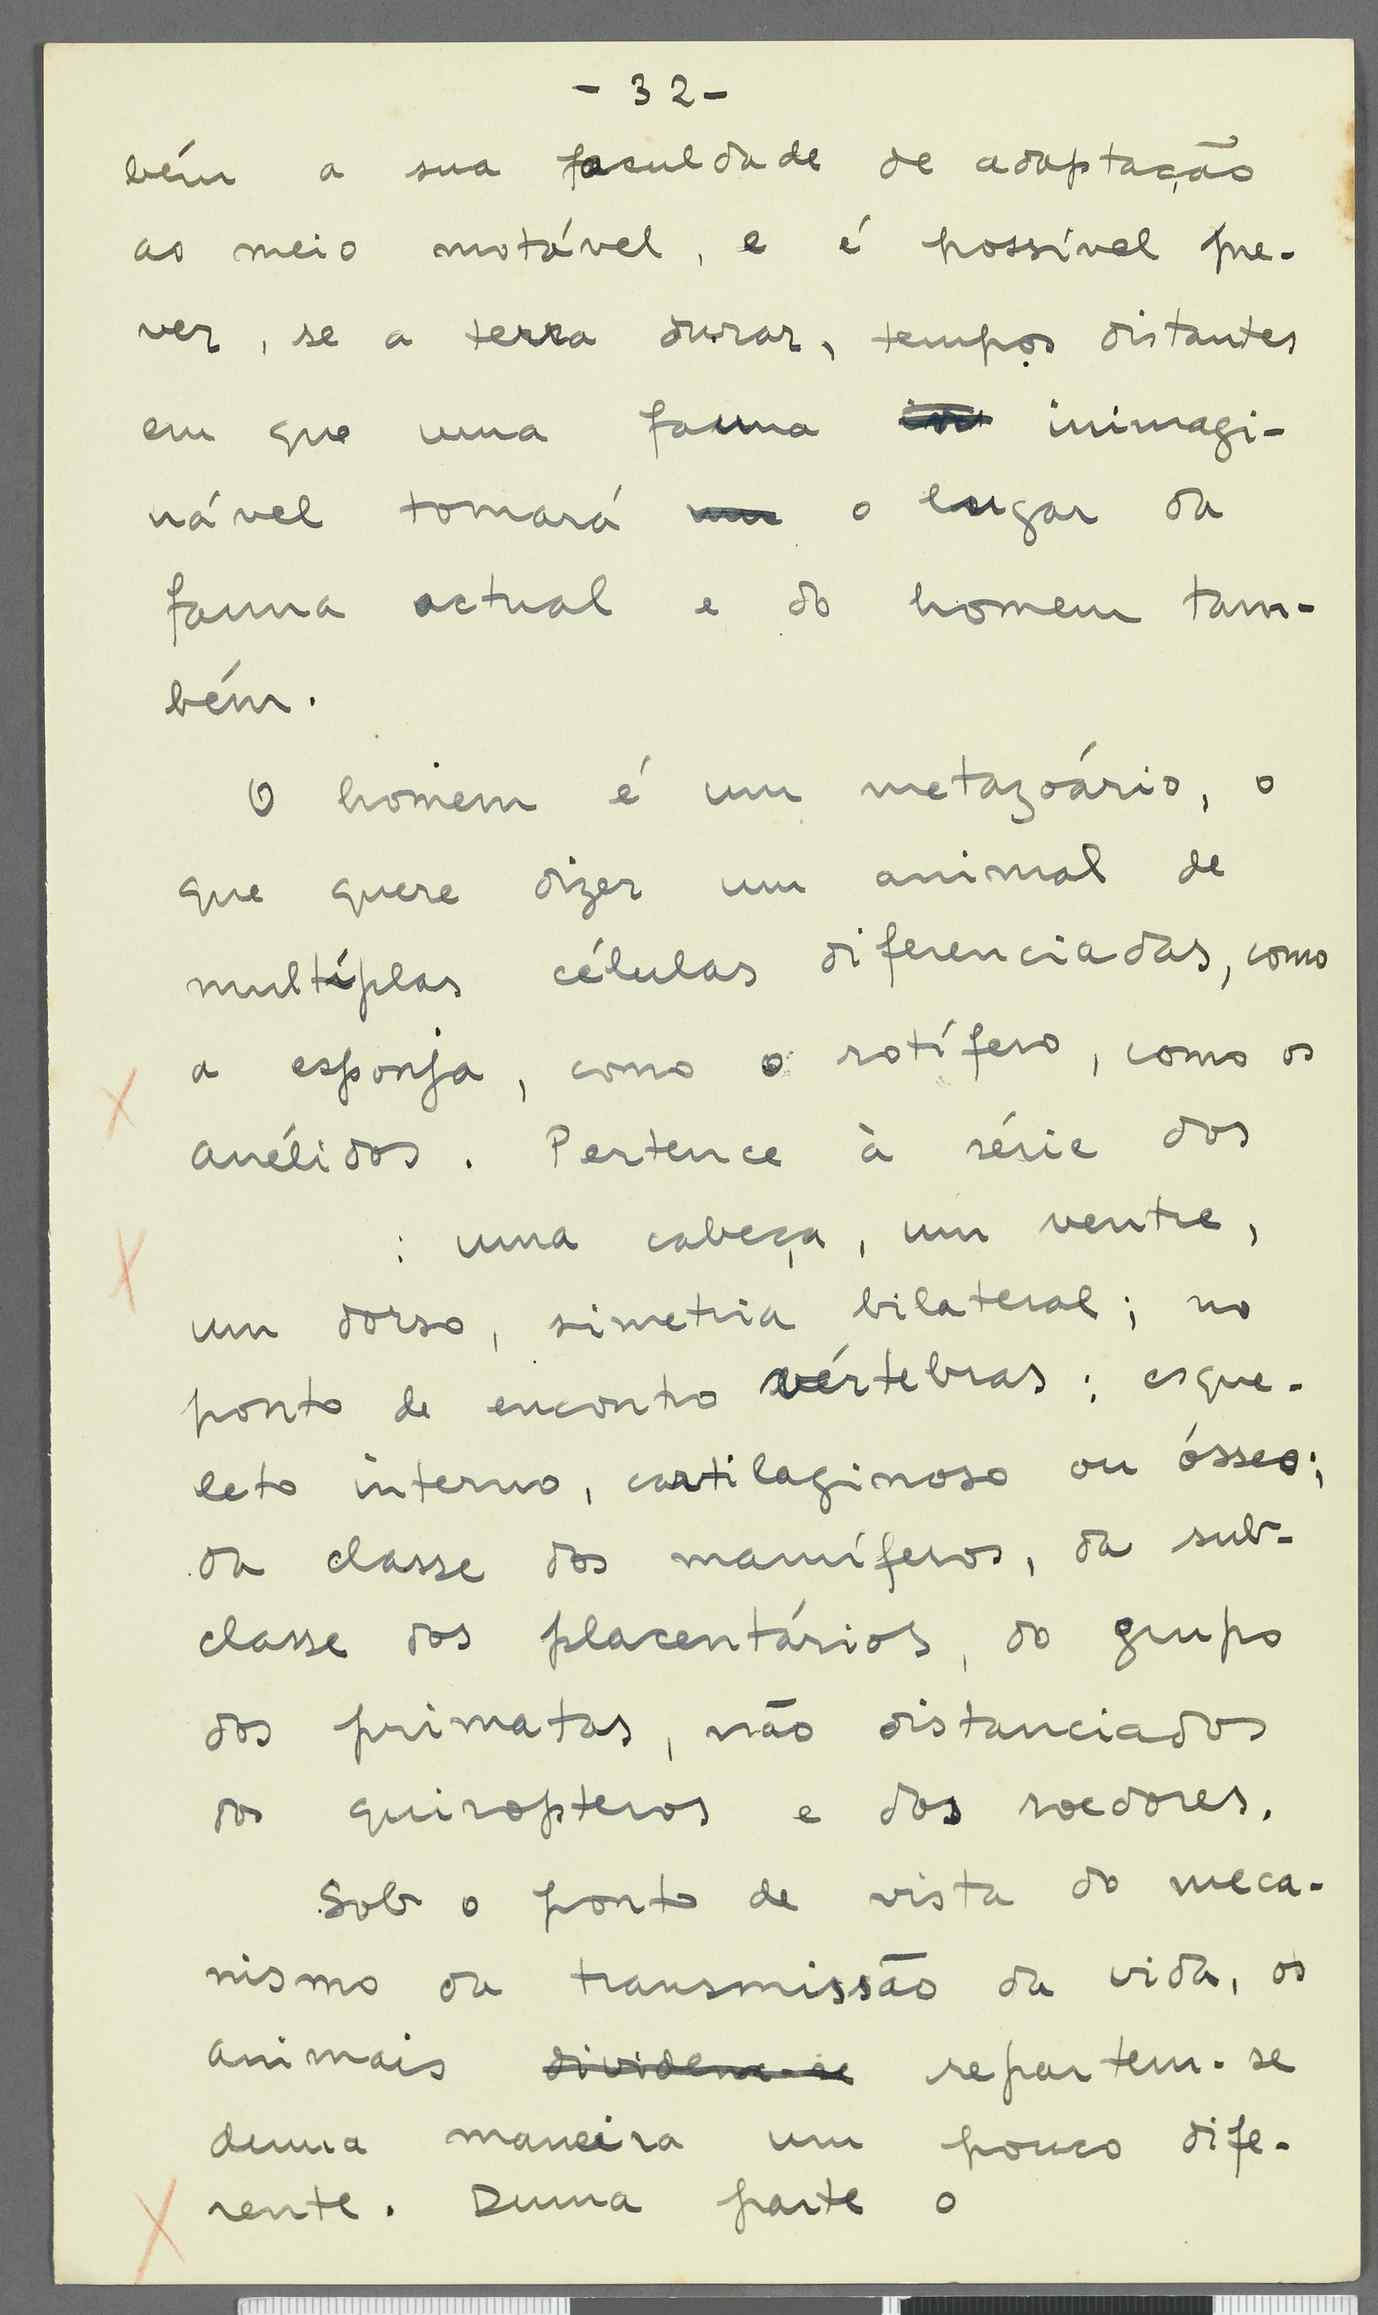 - 32 -
bém a sua faculdade de adaptação
ao meio motável, e é possível pre-
ver, se a terra durar, tempos distantes
em que uma fauna inimagi-
nável tomará o lugar da
fauna actual e do homem tam-
bém.
O homem é um metazoário, o
que quere dizer um animal de
multíplas células diferenciadas, como
a esponja, como o rotífero, como os
anélidos. Pertence à série dos
: uma cabeça, um ventre,
um dorso, simetria bilateral; no
ponto de encontro vértebras; esque-
leto interno, cartilaginoso ou ósseo;
da classe dos mamíferos, da sub-
classe dos placentários, do grupo
dos primatas, não distanciados
dos quiropteros e dos roedores.
Sob o ponto de vista do meca-
nismo da transmissão da vida, os
animais dividem-se repartem-se
duma maneira um pouco dife-
rente. Duma parte o